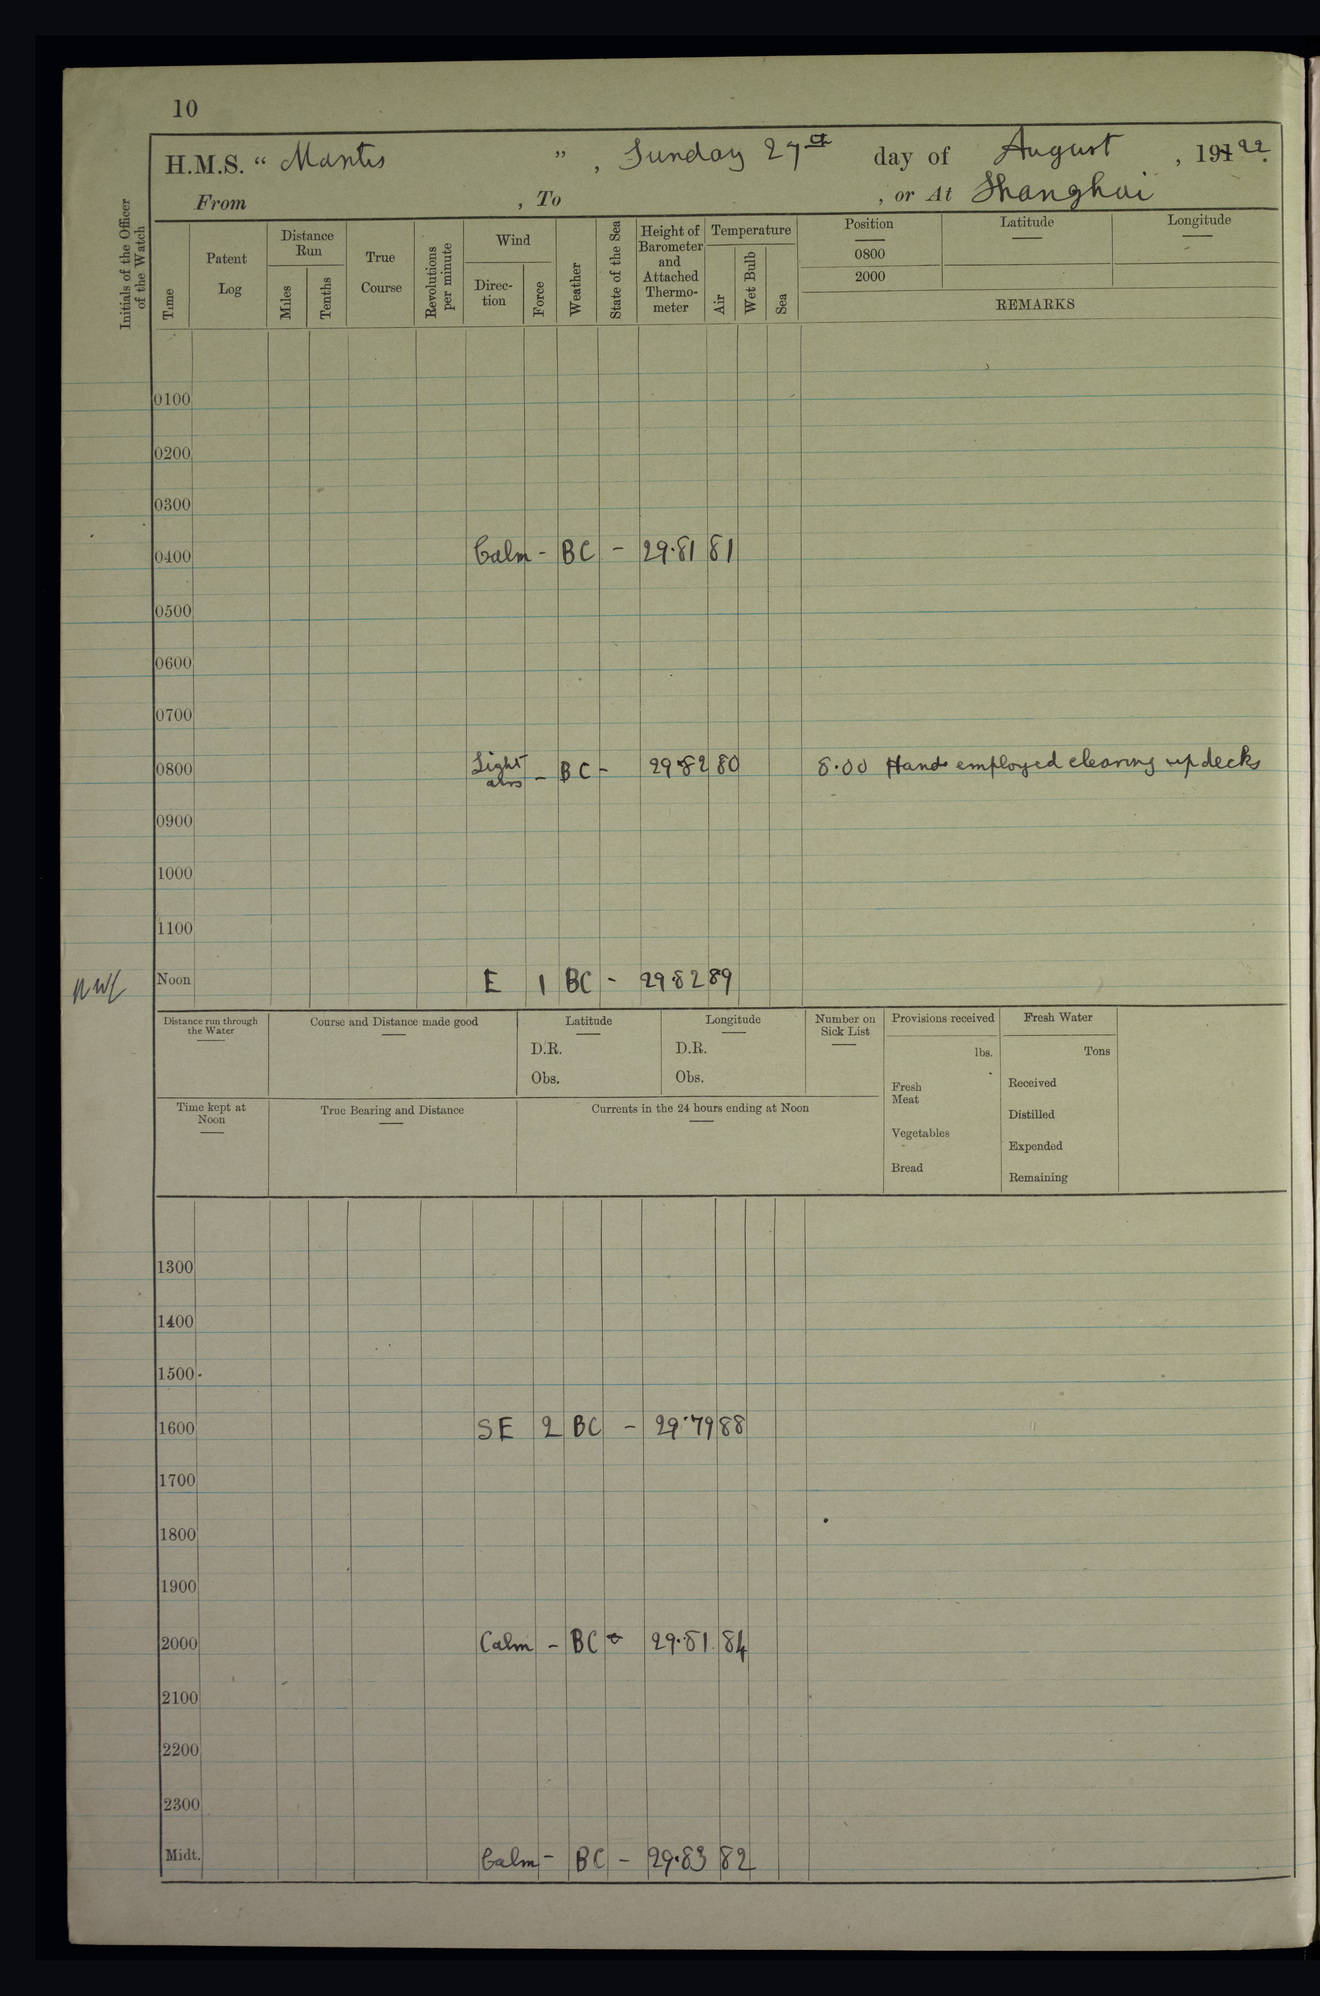 10
H.M.S. “ Mantis ” , Sunday 27th day of August , 1922.
From , To , or At Shanghai
Initials of the Officer of the Watch
Time
Patent Log
Distance Run
Miles
Tenths
True Course
Revolutions per minute
Wind
Direc-tion
Force
Weather
State of the Sea
Height of Barometer and Attached Thermo-meter
Temperature
Air
Wet Bulb
Sea
Position
0800
2000
Latitude
Longitude
REMARKS
0100
0200
0300
0400 Calm - BC - 29.81 81
0500
0600
0700
0800 Light airs - BC - 29.82 80 8.00 Hands employed clearing up decks
0900
1000
1100
Noon E 1 BC - 29.82 89
Distance run through the Water
Course and Distance made good
Latitude
D.R.
Obs.
Longitude
D.R.
Obs.
Number on Sick List
Provisions received
lbs.
Fresh Meat
Vegetables
Bread
Fresh Water
Tons
Received
Distilled
Expended
Remaining
Time kept at Noon
True Bearing and Distance
Currents in the 24 hours ending at Noon
1300
1400
1500
1600 SE 2 BC - 29.79 88
1700
1800
1900
2000 Calm - BC - 29.81 84
2100
2200
2300
Midt. Calm - BC - 29.83 82